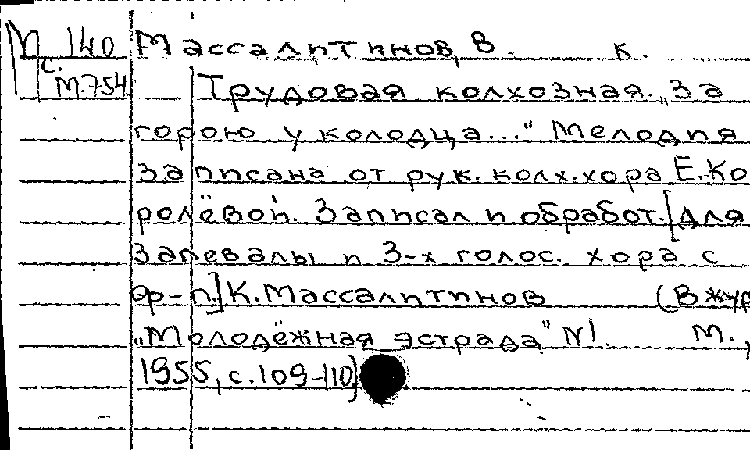 М 140 Массалитинов, В. К.
с.
М.754 Трудовая колхозная. „За
горою у колодца..." Мелодия
записана от рук. колх. хора Е. Ко
ролёвой. Записал и обработ. [для
запевалы и 3-х голос. хора с
ф-п.] К. Массалитинов (В жур
„Молодёжная эстрада" №1 М.,
1955, с. 109-110)